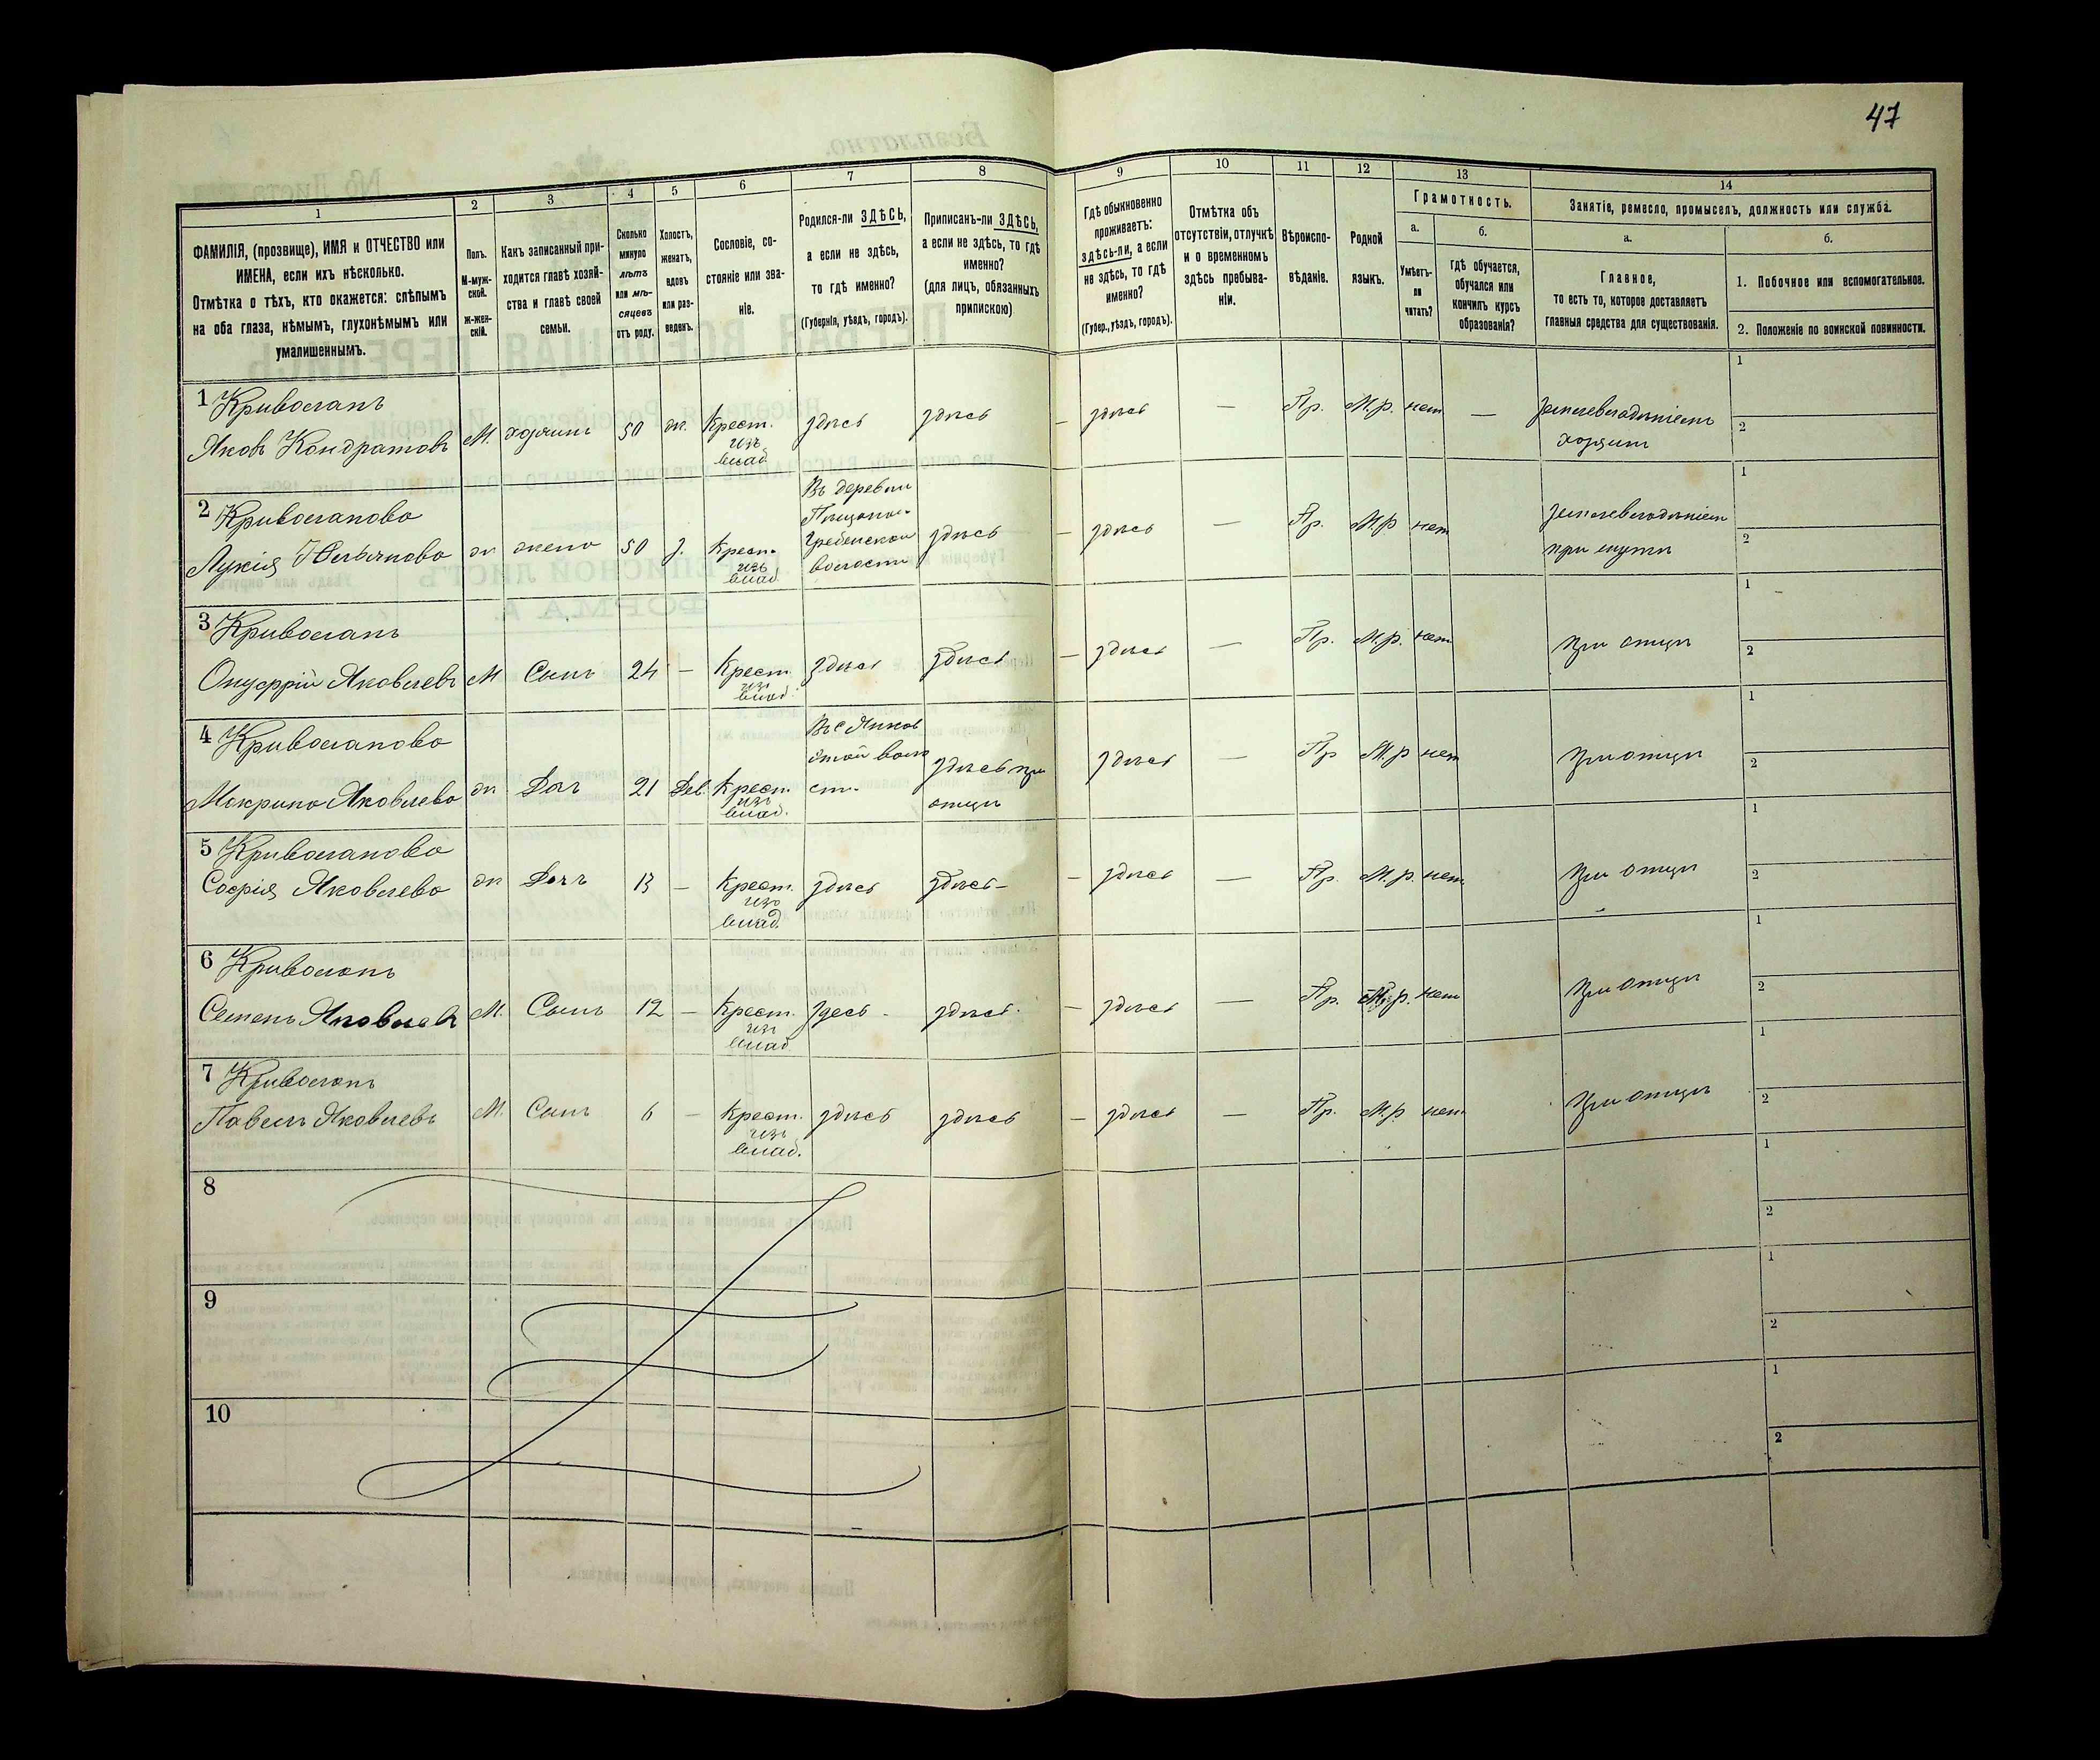 47
1
2
3
4
5
6
7
8
9
10
11
12
13
14
ФАМИЛІЯ, (прозвище), ИМЯ и ОТЧЕСТВО или
ИМЕНА, если ихъ нѣсколько.
Отмѣтка о тѣхъ, кто окажется: слѣпымъ
на оба глаза, нѣмымъ, глухонѣмымъ или
умалишеннымъ.
Полъ.
М-муж-
ской.
Ж-жен-
скій.
Какъ записанный при-
ходится главѣ хозяй-
ства и главѣ своей
семьи.
Сколько
минуло
лѣтъ
или мѣ-
сяцевъ
отъ роду.
Холостъ,
женатъ,
вдовъ
или раз-
веденъ.
Сословіе, со-
стояніе или зва-
ніе.
Родился-ли ЗДѢСЬ,
а если не здѣсь,
то гдѣ именно?
(Губернія, уѣздъ, городъ).
Приписанъ-ли ЗДѢСЬ,
а если не здѣсь, то гдѣ
именно?
(для лицъ, обязанныхъ
припискою)
Гдѣ обыкновенно
проживаетъ:
здѣсь-ли, а если
не здѣсь, то гдѣ
именно?
(Губер., уѣздъ, городъ).
Отмѣтка объ
отсутствіи, отлучкѣ
и о временномъ
здѣсь пребыва-
ніи.
Вѣроиспо-
вѣданіе.
Родной
языкъ.
Грамотность.
а.
Умѣетъ-
ли
читать?
б.
Гдѣ обучается,
обучался или
кончилъ курсъ
образованія?
Занятіе, ремесло, промыселъ, должность или служба.
а.
Главное,
то есть то, которое доставляетъ
главныя средства для существованія.
б.
1. Побочное или вспомогательное.
2. Положеніе по воинской повинности.
1 Кривошапъ
Яковъ Кондратовъ М. хозяинъ 50 ж. Крест. изъ влад. здѣсь здѣсь — здѣсь — Пр. М.р. нет — земледѣліемъ хозяинъ
1
2
2 Кривошапова
Лукія ж жена 50 з. Крест. изъ влад Въ деревни Гребенской волости здѣсь — здѣсь — Пр. М.р нет при мужѣ
1
2
3 Кривошапъ
Онуфрій Яковлевъ М Сынъ 24 — Крест. изъ влад. здѣсь здѣсь — здѣсь — Пр. М.р. нет при отцѣ
1
2
4 Кривошапова
Макрина Яковлева ж Доч 21 Дев. Крест. изъ влад. здѣсь при отцѣ здѣсь — Пр М.р нет при отцѣ
1
2
5 Кривошапова
Софія Яковлева ж Доч 13 — Крест. изъ влад. здѣсь здѣсь — здѣсь — Пр. М.р. нет при отцѣ
1
2
6 Кривошапъ
Семенъ Яковлевъ М. Сынъ 12 — Крест. изъ влад здесь здѣсь. — здѣсь — Пр. М.р. нет при отцѣ
1
2
7 Кривошапъ
Павелъ Яковлевъ М. Сынъ 6 — Крест. изъ влад. здѣсь здѣсь — здѣсь — Пр. М.р. нет при отцѣ
1
2
8
1
2
9
1
2
10
1
2